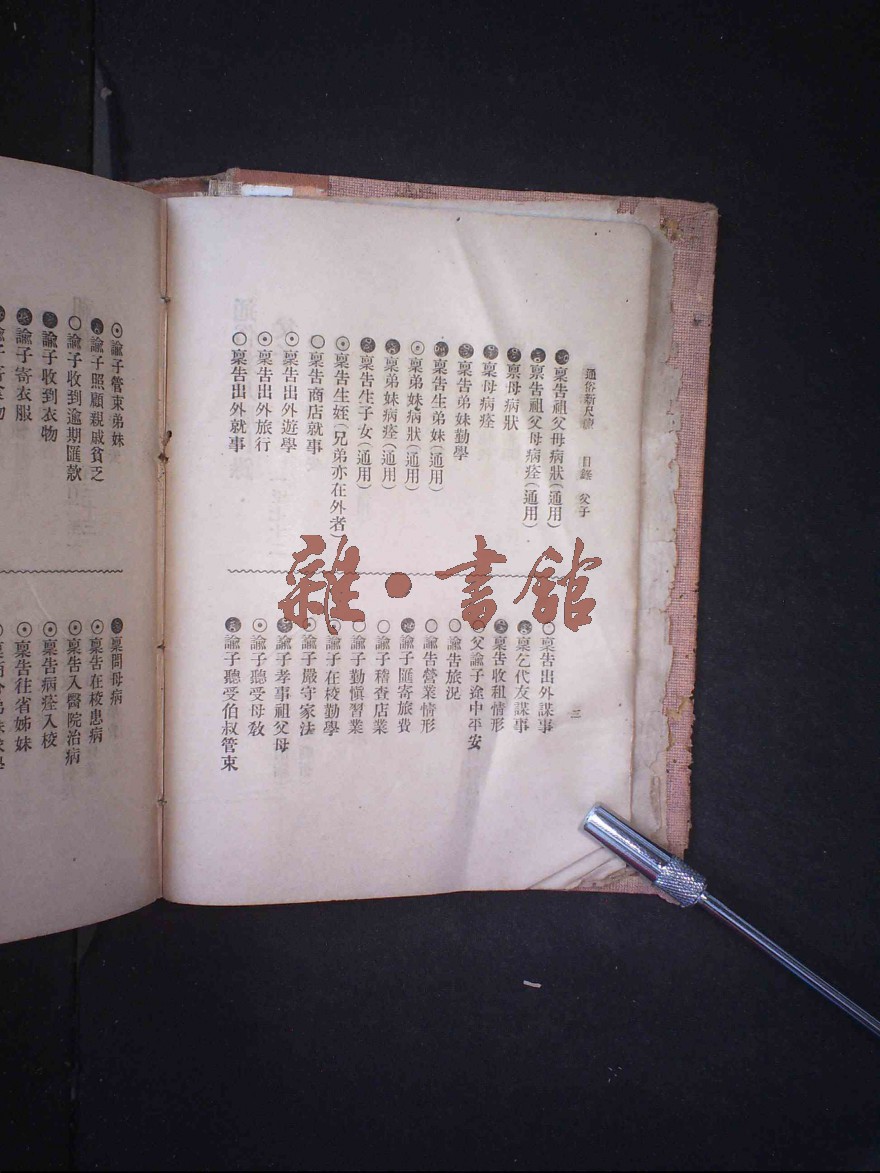 通俗新尺牘　目錄　父子
三
稟告祖父母病狀(通用)
稟告祖父母病痊(通用)
稟母病狀
稟母病痊
稟告弟妹勤學
稟告生弟妹(通用)
稟弟妹病狀(通用)
稟弟妹病痊(通用)
稟告生子女(通用)
稟告生姪(兄弟亦在外者)
稟告商店就事
稟告出外遊學
稟告出外旅行
稟告出外就事
稟告出外謀事
稟乞代友謀事
稟告收租情形
父諭子途中平安
諭告旅況
諭告營業情形
諭子匯寄旅費
諭子稽查店業
諭子勤慎習業
諭子在校勤學
諭子嚴守家法
諭子孝事祖父母
諭子聽受母教
諭子聽受伯叔管束
諭子管束弟妹
諭子照顧親戚貧乏
諭子收到逾期匯款
諭子收到衣物
諭子寄衣服
稟問母病
稟告在校患病
稟告入醫院治病
稟告病痊入校
稟告往省姊妹
雜·書館